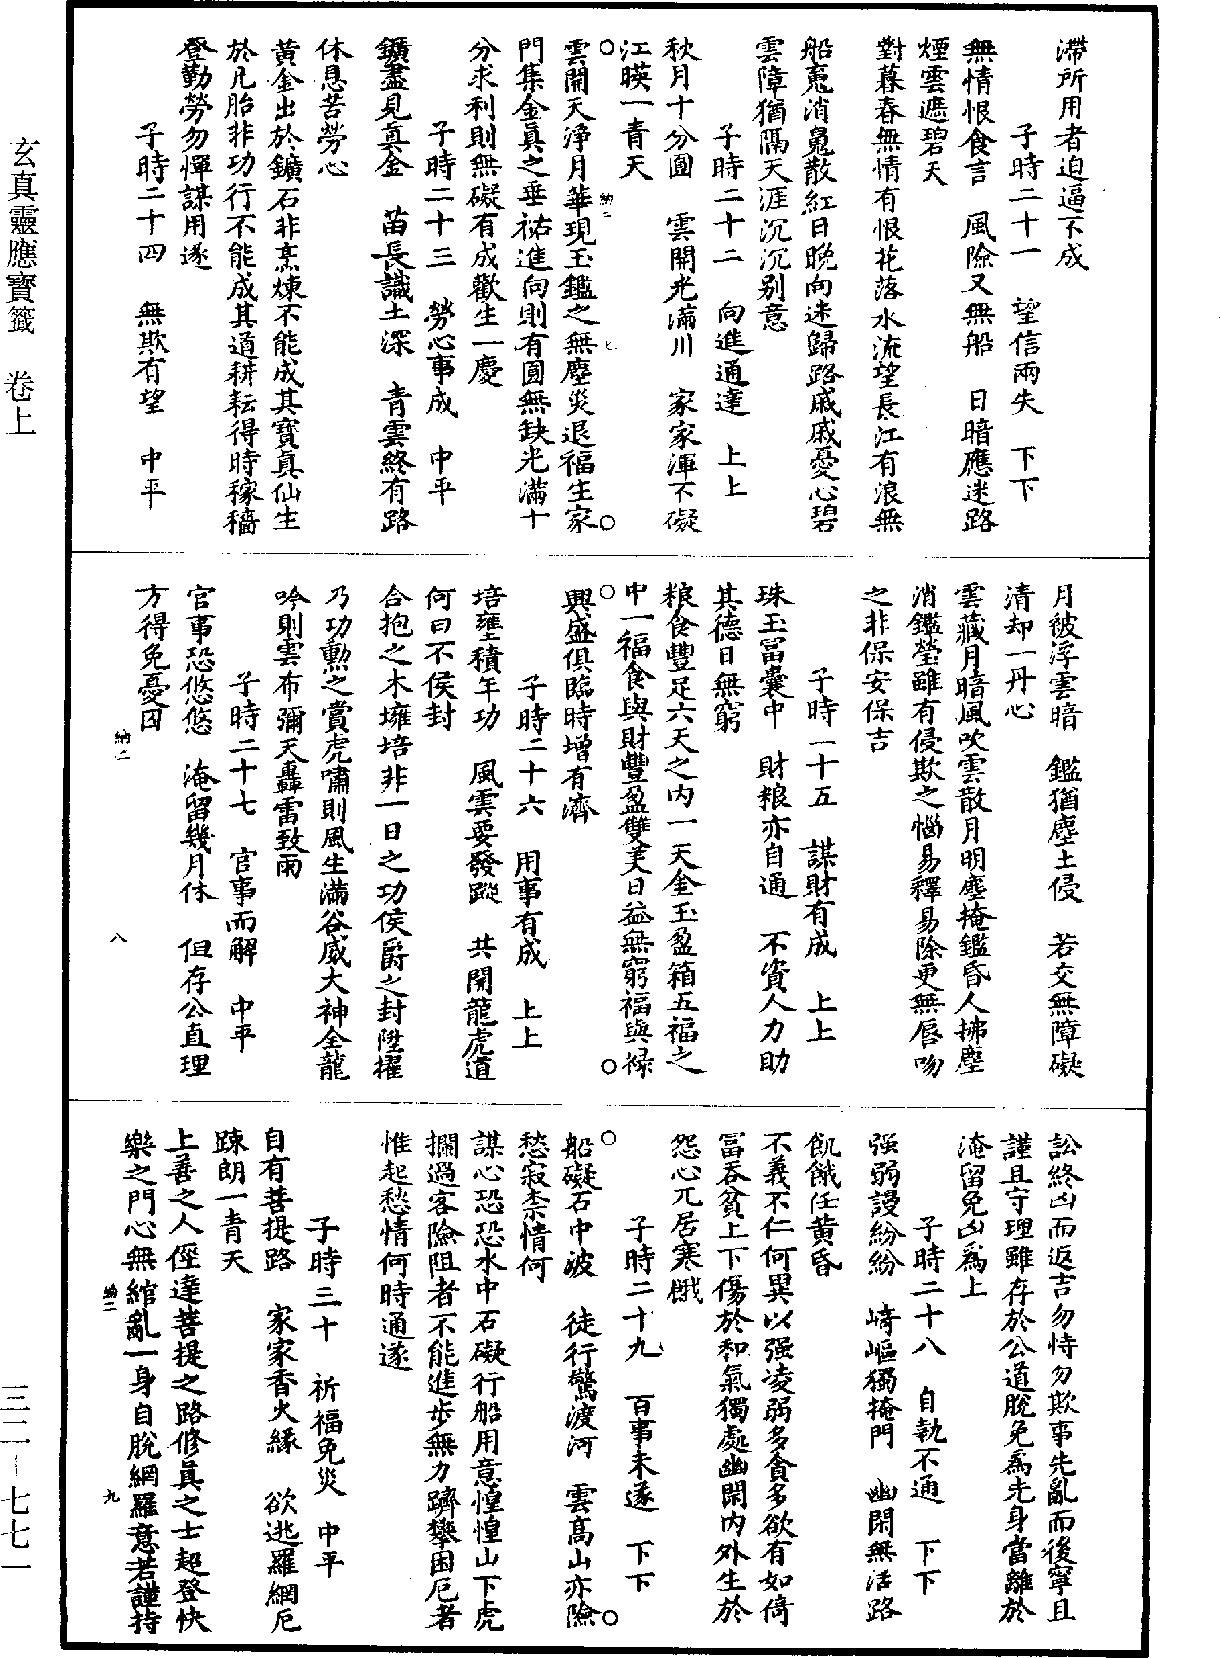 滯所用者迫逼不成
子時二十一　望信兩失　下下
無情恨食言　風險又無船　日暗應迷路
煙雲遮碧天
對暮春無情有恨花落水流望長江有浪無
船䰟消䰟散紅日晚向迷歸路戚戚憂心碧
雲障猶隔天涯沉沉別意
子時二十二　向進通達　上上
秋月十分圓　雲開光滿川　家家渾不礙
江暎一青天
雲開天淨月華現玉鑑之無塵災退福生家
門集金眞之垂祐進向則有圓無缺光滿十
分求利則無礙有成歡生一慶
子時二十三　勞心事成　中平
鑛盡見真金　苗長識土深　青雲終有路
休息苦勞心
黃金出於鑛石非烹煉不能成其寶真仙生
於凡胎非功行不能成其道耕耘得時稼穡
登勤勞勿憚謀用遂
子時二十四　無欺有望　中平
月被浮雲暗　鑑猶塵土侵　若交無障礙
清却一丹心
雲藏月暗風吹雲散月明塵掩鑑昏人拂塵
消鑑瑩雖有侵欺之惱易釋易除更無唇吻
之非保安保吉
子時二十五　謀財有成　上上
珠玉冨囊中　財粮亦自通　不資人力助
其德日無窮
粮食豐足六天之內一天金玉盈箱五福之
中一福食與財豐盈雙美日益無窮福與祿
興盛俱臨時增有濟
子時二十六　用事有成　上上
培壅積年功　風雲要發蹤　共開龍虎道
何曰不侯封
合抱之木壅培非一日之功侯爵之封陞擢
乃功勳之賞虎嘯則風生滿谷威大神全龍
吟則雲布彌天轟雷致雨
子時二十七　官事而解　中平
官事恐悠悠　淹留幾月休　但存公直理
方得免憂囚
訟終凶而返吉勿恃勿欺事先亂而後寧且
謹且守理雖存於公道脫免爲先身當離於
淹留免凶爲上
子時二十八　自執不通　下下
强弱謾紛紛　崎嶇獨掩門　幽閑無活路
飢餓任黃昏
不義不仁何異以强凌弱多貪多欲有如倚
冨吞貧上下傷於和氣獨處幽閑內外生於
怨心兀居寒㦍
子時二十九　百事未遂　下下
船礙石中波　徒行驚渡河　雲高山亦險
愁寂柰情何
謀心恐恐水中石礙行船用意惶惶山下虎
攔過客險阻者不能進步無力躋攀困厄者
惟起愁情何時通遂
子時三十　祈福免災　中平
自有菩提路　家家香火緣　欲逃羅網厄
踈朗一青天
上善之人徑達菩提之路修眞之士超登快
樂之門心無綰亂一身自脫網羅意若謹持
納二　七
納二　八
納二　九
玄真靈應寶籤　卷上
三二—七七一